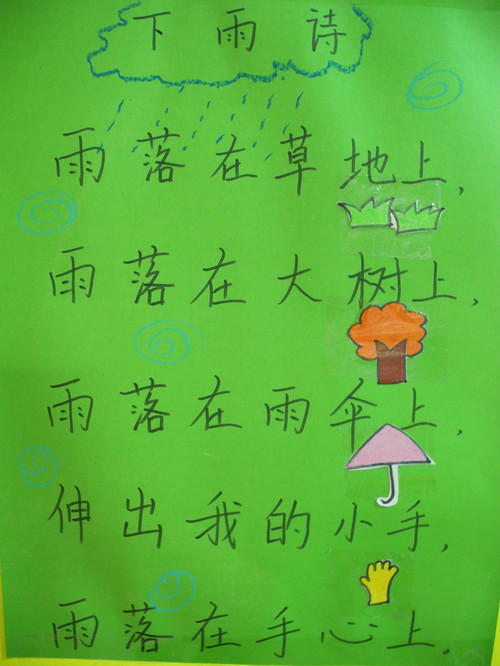 下雨诗
雨落在草地上，
雨落在大树上，
雨落在雨伞上，
伸出我的小手，
雨落在手心上。